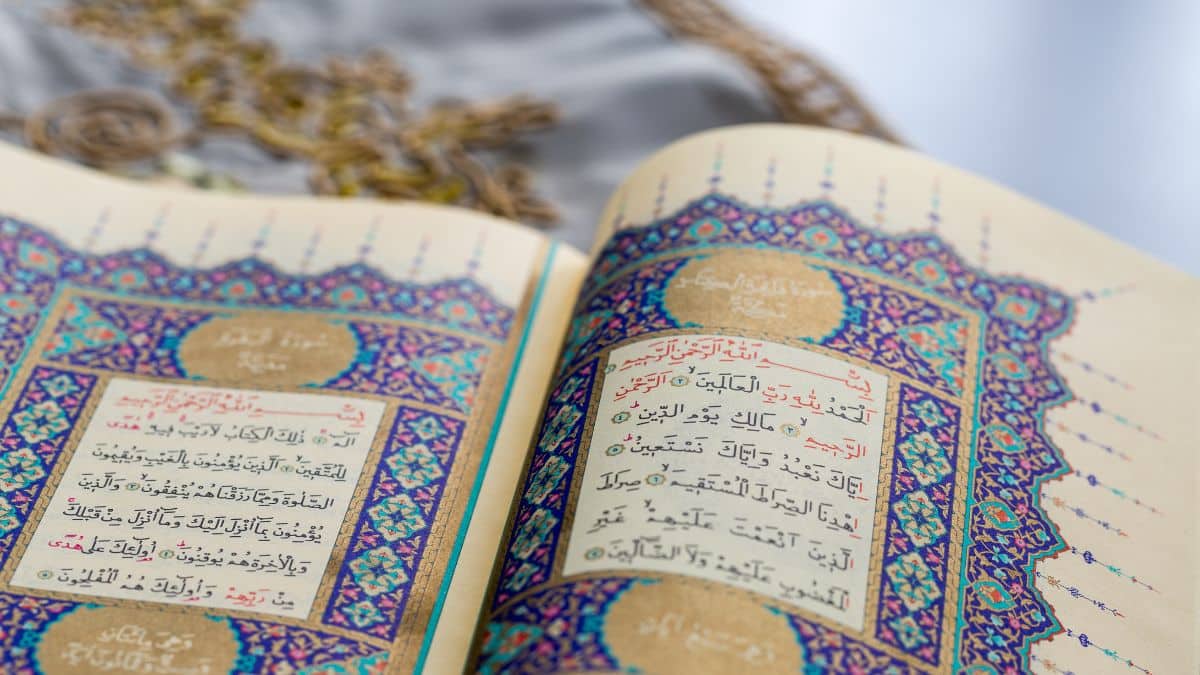 بِسْمِ اللّٰهِ الرَّحْمٰنِ الرَّحِيمِ ١
اَلْحَمْدُ لِلّٰهِ رَبِّ الْعَالَمِينَۙ ٢ اَلرَّحْمٰنِ
الرَّحِيمِۙ ٣ مَالِكِ يَوْمِ الدِّينِۜ ٤
اِيَّاكَ نَعْبُدُ وَاِيَّاكَ نَسْتَعِينُۜ ٥
اِهْدِنَا الصِّرَاطَ الْمُسْتَقِيمَۙ ٦ صِرَاطَ
الَّذِينَ اَنْعَمْتَ عَلَيْهِمْۙ غَيْرِ
الْمَغْضُوبِ عَلَيْهِمْ وَلَا الضَّالِّينَ ٧
وهي سبع آيات
سورة البقرة
مدنية
بِسْمِ اللّٰهِ الرَّحْمٰنِ الرَّحِيمِ
الٓمٓۜ ١ ذٰلِكَ الْكِتَابُ لَا رَيْبَۚ فِيهِۚ هُدًى
لِلْمُتَّقِينَۙ ٢ اَلَّذِينَ يُؤْمِنُونَ بِالْغَيْبِ وَيُقِيمُونَ
الصَّلٰوةَ وَمِمَّا رَزَقْنَاهُمْ يُنْفِقُونَۙ ٣ وَالَّذِينَ
يُؤْمِنُونَ بِمَٓا اُنْزِلَ اِلَيْكَ وَمَٓا اُنْزِلَ مِنْ قَبْلِكَۚ
وَبِالْاٰخِرَةِ هُمْ يُوقِنُونَۜ ٤ اُو۬لٰٓئِكَ عَلٰى هُدًى
مِنْ رَبِّهِمْ وَاُو۬لٰٓئِكَ هُمُ الْمُفْلِحُونَ ٥